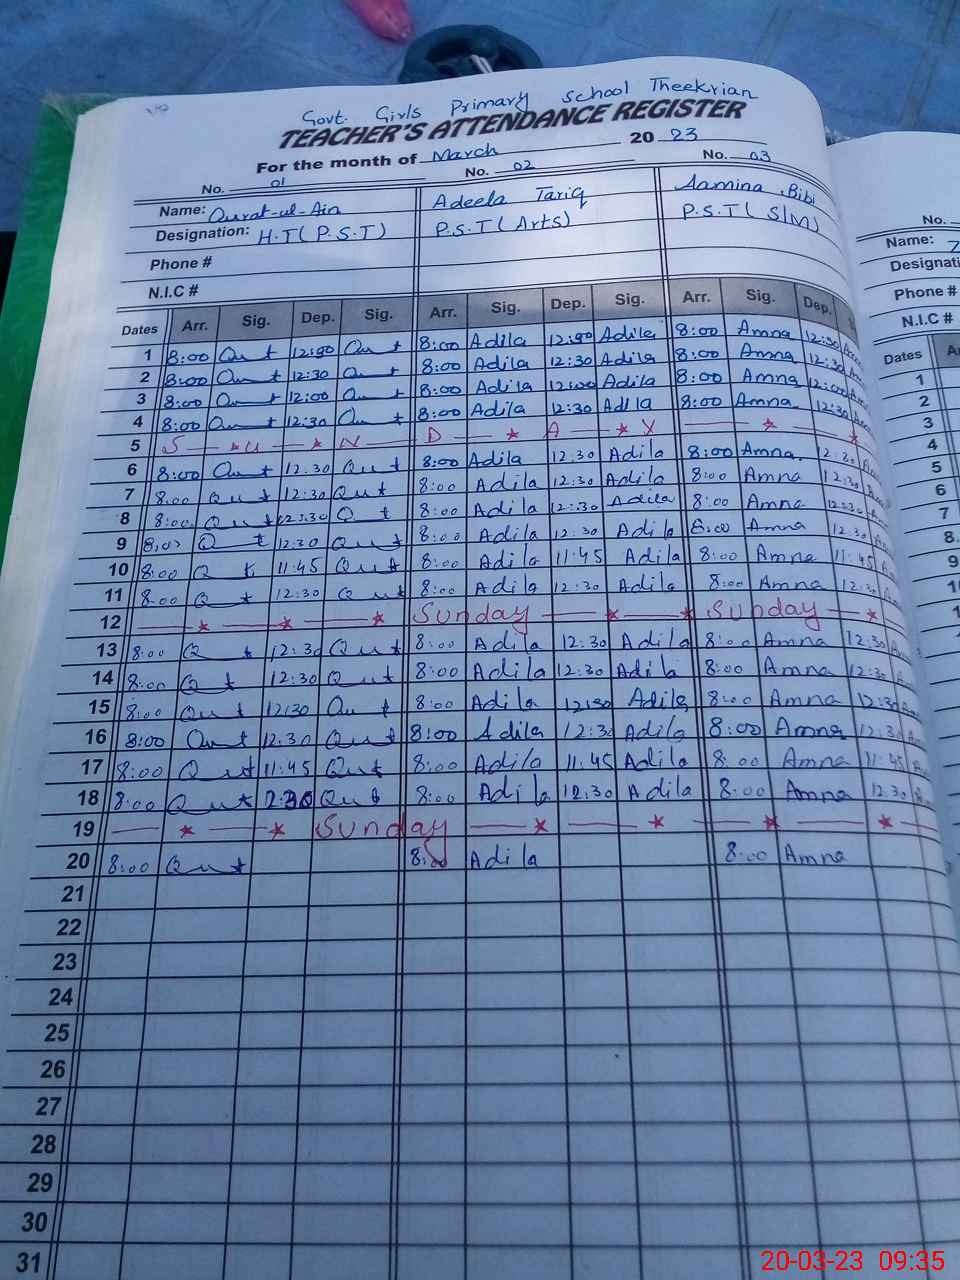 Govt. Girls Primary School Theekrian
TEACHER'S ATTENDANCE REGISTER
For the month of March 20 23
No. 01 No. 02 No. 03
Name: Qurat-ul-Ain Adeela Tariq Aamina Bibi
Designation: H.T (P.S.T) P.S.T (Arts) P.S.T (S/M)
Phone #
N.I.C #
Dates Arr. Sig. Dep. Sig. Arr. Sig. Dep. Sig. Arr. Sig. Dep.
1 8:00 Qut Qut 8:00 Adila Adila 8:00 Amna 12:30
2 8:00 Qut 12:30 Qut 8:00 Adila 12:30 Adila 8:00 Amna 12:30
3 8:00 Qut 12:00 Qut 8:00 Adila 12:00 Adila 8:00 Amna 12:00
4 8:00 Qut 12:30 Qut 8:00 Adila 12:30 Adila 8:00 Amna 12:30
5 S U N D A Y
6 8:00 Qut 12:30 Qut 8:00 Adila 12:30 Adila 8:00 Amna 12:30
7 8:00 Qut 12:30 Qut 8:00 Adila 12:30 Adila 8:00 Amna 12:30
8 8:00 Qut 12:30 Qut 8:00 Adila 12:30 Adila 8:00 Amna 12:30
9 8:00 Qut 12:30 Qut 8:00 Adila 12:30 Adila 8:00 Amna 12:30
10 8:00 Qut 11:45 Qut 8:00 Adila 11:45 Adila 8:00 Amna 11:45
11 8:00 Qut 12:30 Qut 8:00 Adila 12:30 Adila 8:00 Amna 12:30
12 Sunday Sunday
13 8:00 Qut 12:30 Qut 8:00 Adila 12:30 Adila 8:00 Amna 12:30
14 8:00 Qut 12:30 Qut 8:00 Adila 12:30 Adila 8:00 Amna 12:30
15 8:00 Qut 12:30 Qut 8:00 Adila 12:30 Adila 8:00 Amna 12:30
16 8:00 Qut 12:30 Qut 8:00 Adila 12:30 Adila 8:00 Amna 12:30
17 8:00 Qut 11:45 Qut 8:00 Adila 11:45 Adila 8:00 Amna 11:45
18 8:00 Qut 2:30 Qut 8:00 Adila 12:30 Adila 8:00 Amna 12:30
19 Sunday
20 8:00 Qut 8:00 Adila 8:00 Amna
21
22
23
24
25
26
27
28
29
30
31
No.
Name:
Phone #
N.I.C #
Dates
1
2
3
4
5
6
7
8
9
10
20-03-23 09:35